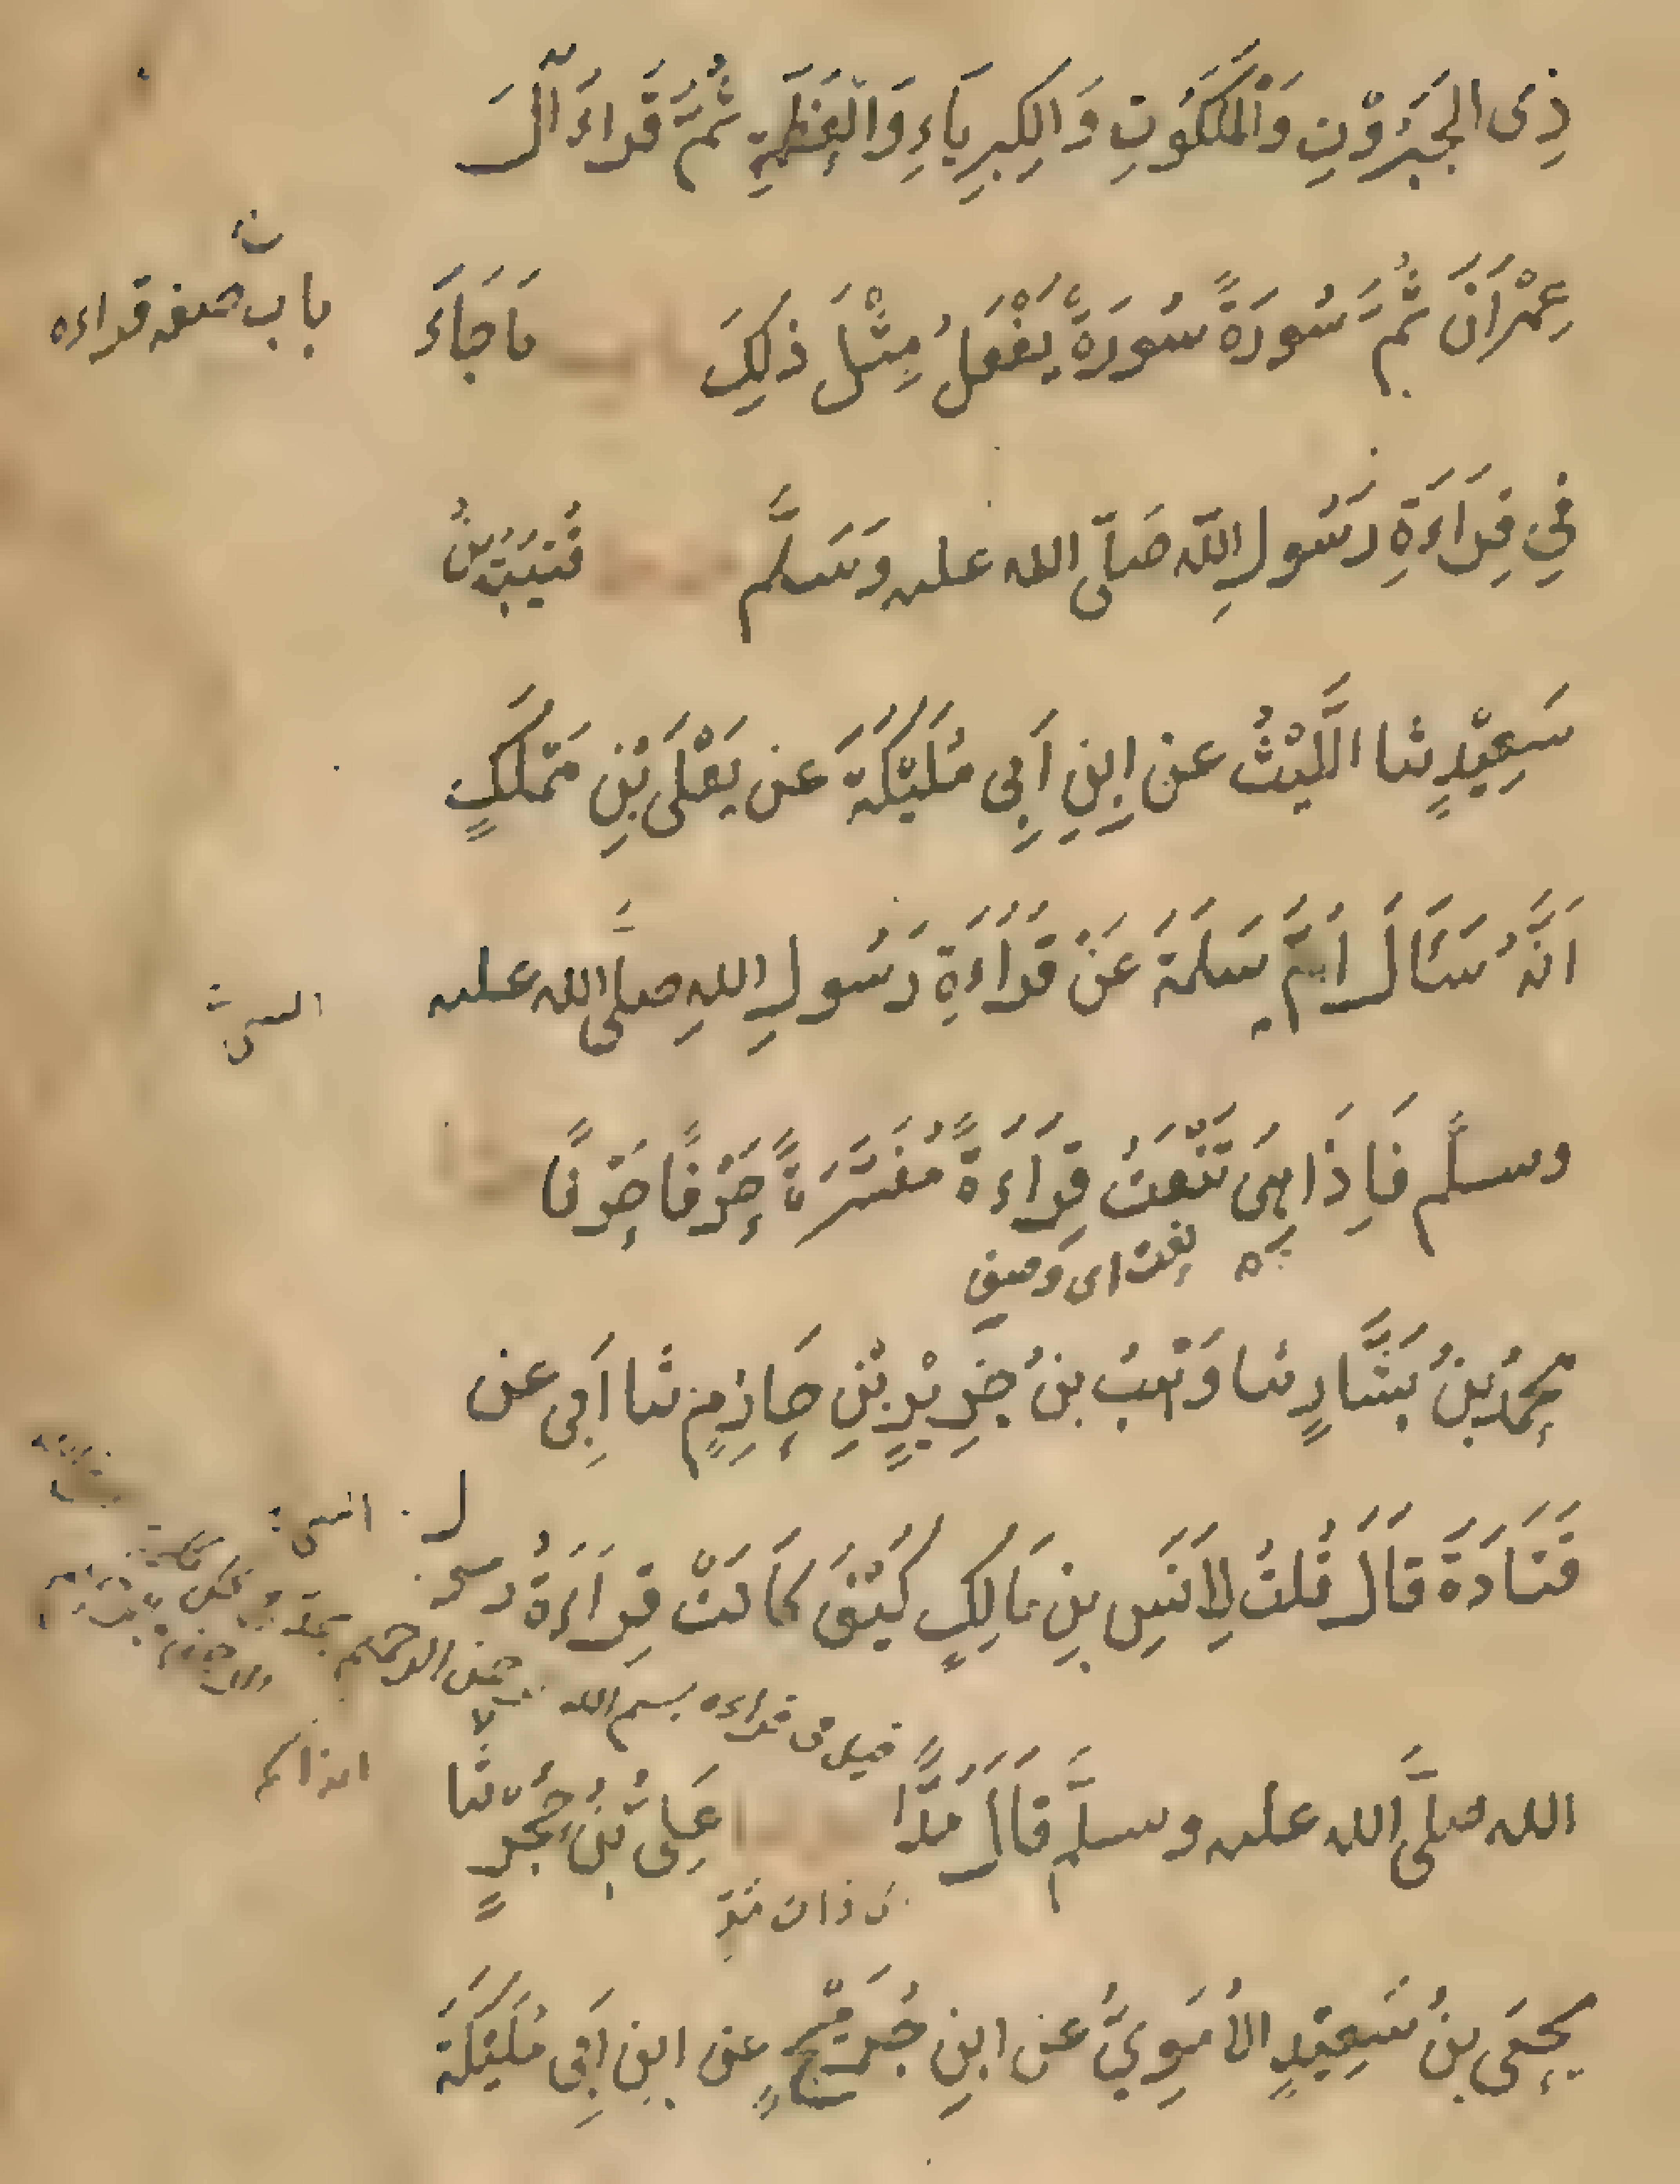 ذِى الجَبَرُوْتِ وَالْمَلَكُوتِ وَالكِبرِيَاءِ وَالْعَظَمَةِ ثُمَّ قَراءَ آلَ
عِمْرَانَ ثُمَّ سُورَةً سُورَةً يَفْعَلُ مِثْلَ ذلِكَ باب مَا جَاءَ
باب صفه قراءه
فِي قِرَاءَةِ رَسُولِ اللّه صَلّى الله عليه وَسَلَّم حدثنا قُتَيبَةُ بنُ
سَعِيْدٍ ثنا اللَّيْثُ عن ابنِ اَبِى مُلَيْكَةَ عن يَعْلَى بْنِ مَمْلَكٍ
اَنَّهُ سَئَالَ اُمَّ سَلَمَةَ عَنْ قِرَاءَةِ رَسُولِ اللهِ صلَّى الله عليه
النبى
وسلَّم فَاِذَا هِىَ تَنْعَتُ قِرَاءَةً مُفَسَّرَةً حَرْفًا حَرْفًا حدثنا
نعت اى وصف
محمدُ بنُ بَشَّارٍ ثنا وَهْبُ بنُ جَرِيْرِ بْنِ حَازِمٍ ثنا اَبِى عن
قَتَادَةَ قَالَ قُلتُ لِاَنَسِ بنِ مَالِكٍ كَيْفَ كَانَتْ قِرَاءَةُ رسول
النبى
قيل فى قراءه بسم الله الرحمن الرحيم
الله صلَّى الله عليه وسلَّم قَالَ مَدًّا حدثنا عَلِىُّ بْنُ حُجْرٍ ثنا
ذات مد
يحيَى بنُ سَعِيْدٍ الاُمَوِيُّ عن ابنِ جُرَيْجٍ عن ابنِ اَبِى مُلَيْكَةَ